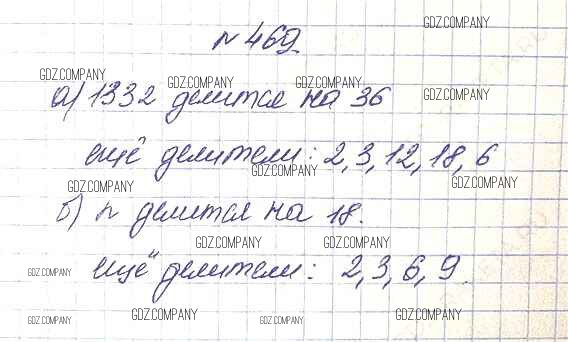 GDZ.COMPANY
№ 469
GDZ.COMPANY GDZ.COMPANY GDZ.COMPANY GDZ.COMPANY
а) 1332 делится на 36
ещё делители: 2, 3, 12, 18, 6
GDZ.COMPANY GDZ.COMPANY GDZ.COMPANY
б) n делится на 18.
GDZ.COMPANY GDZ.COMPANY
ещё делители: 2, 3, 6, 9.
GDZ.COMPANY
GDZ.COMPANY GDZ.COMPANY GDZ.COMPANY GDZ.COMPANY